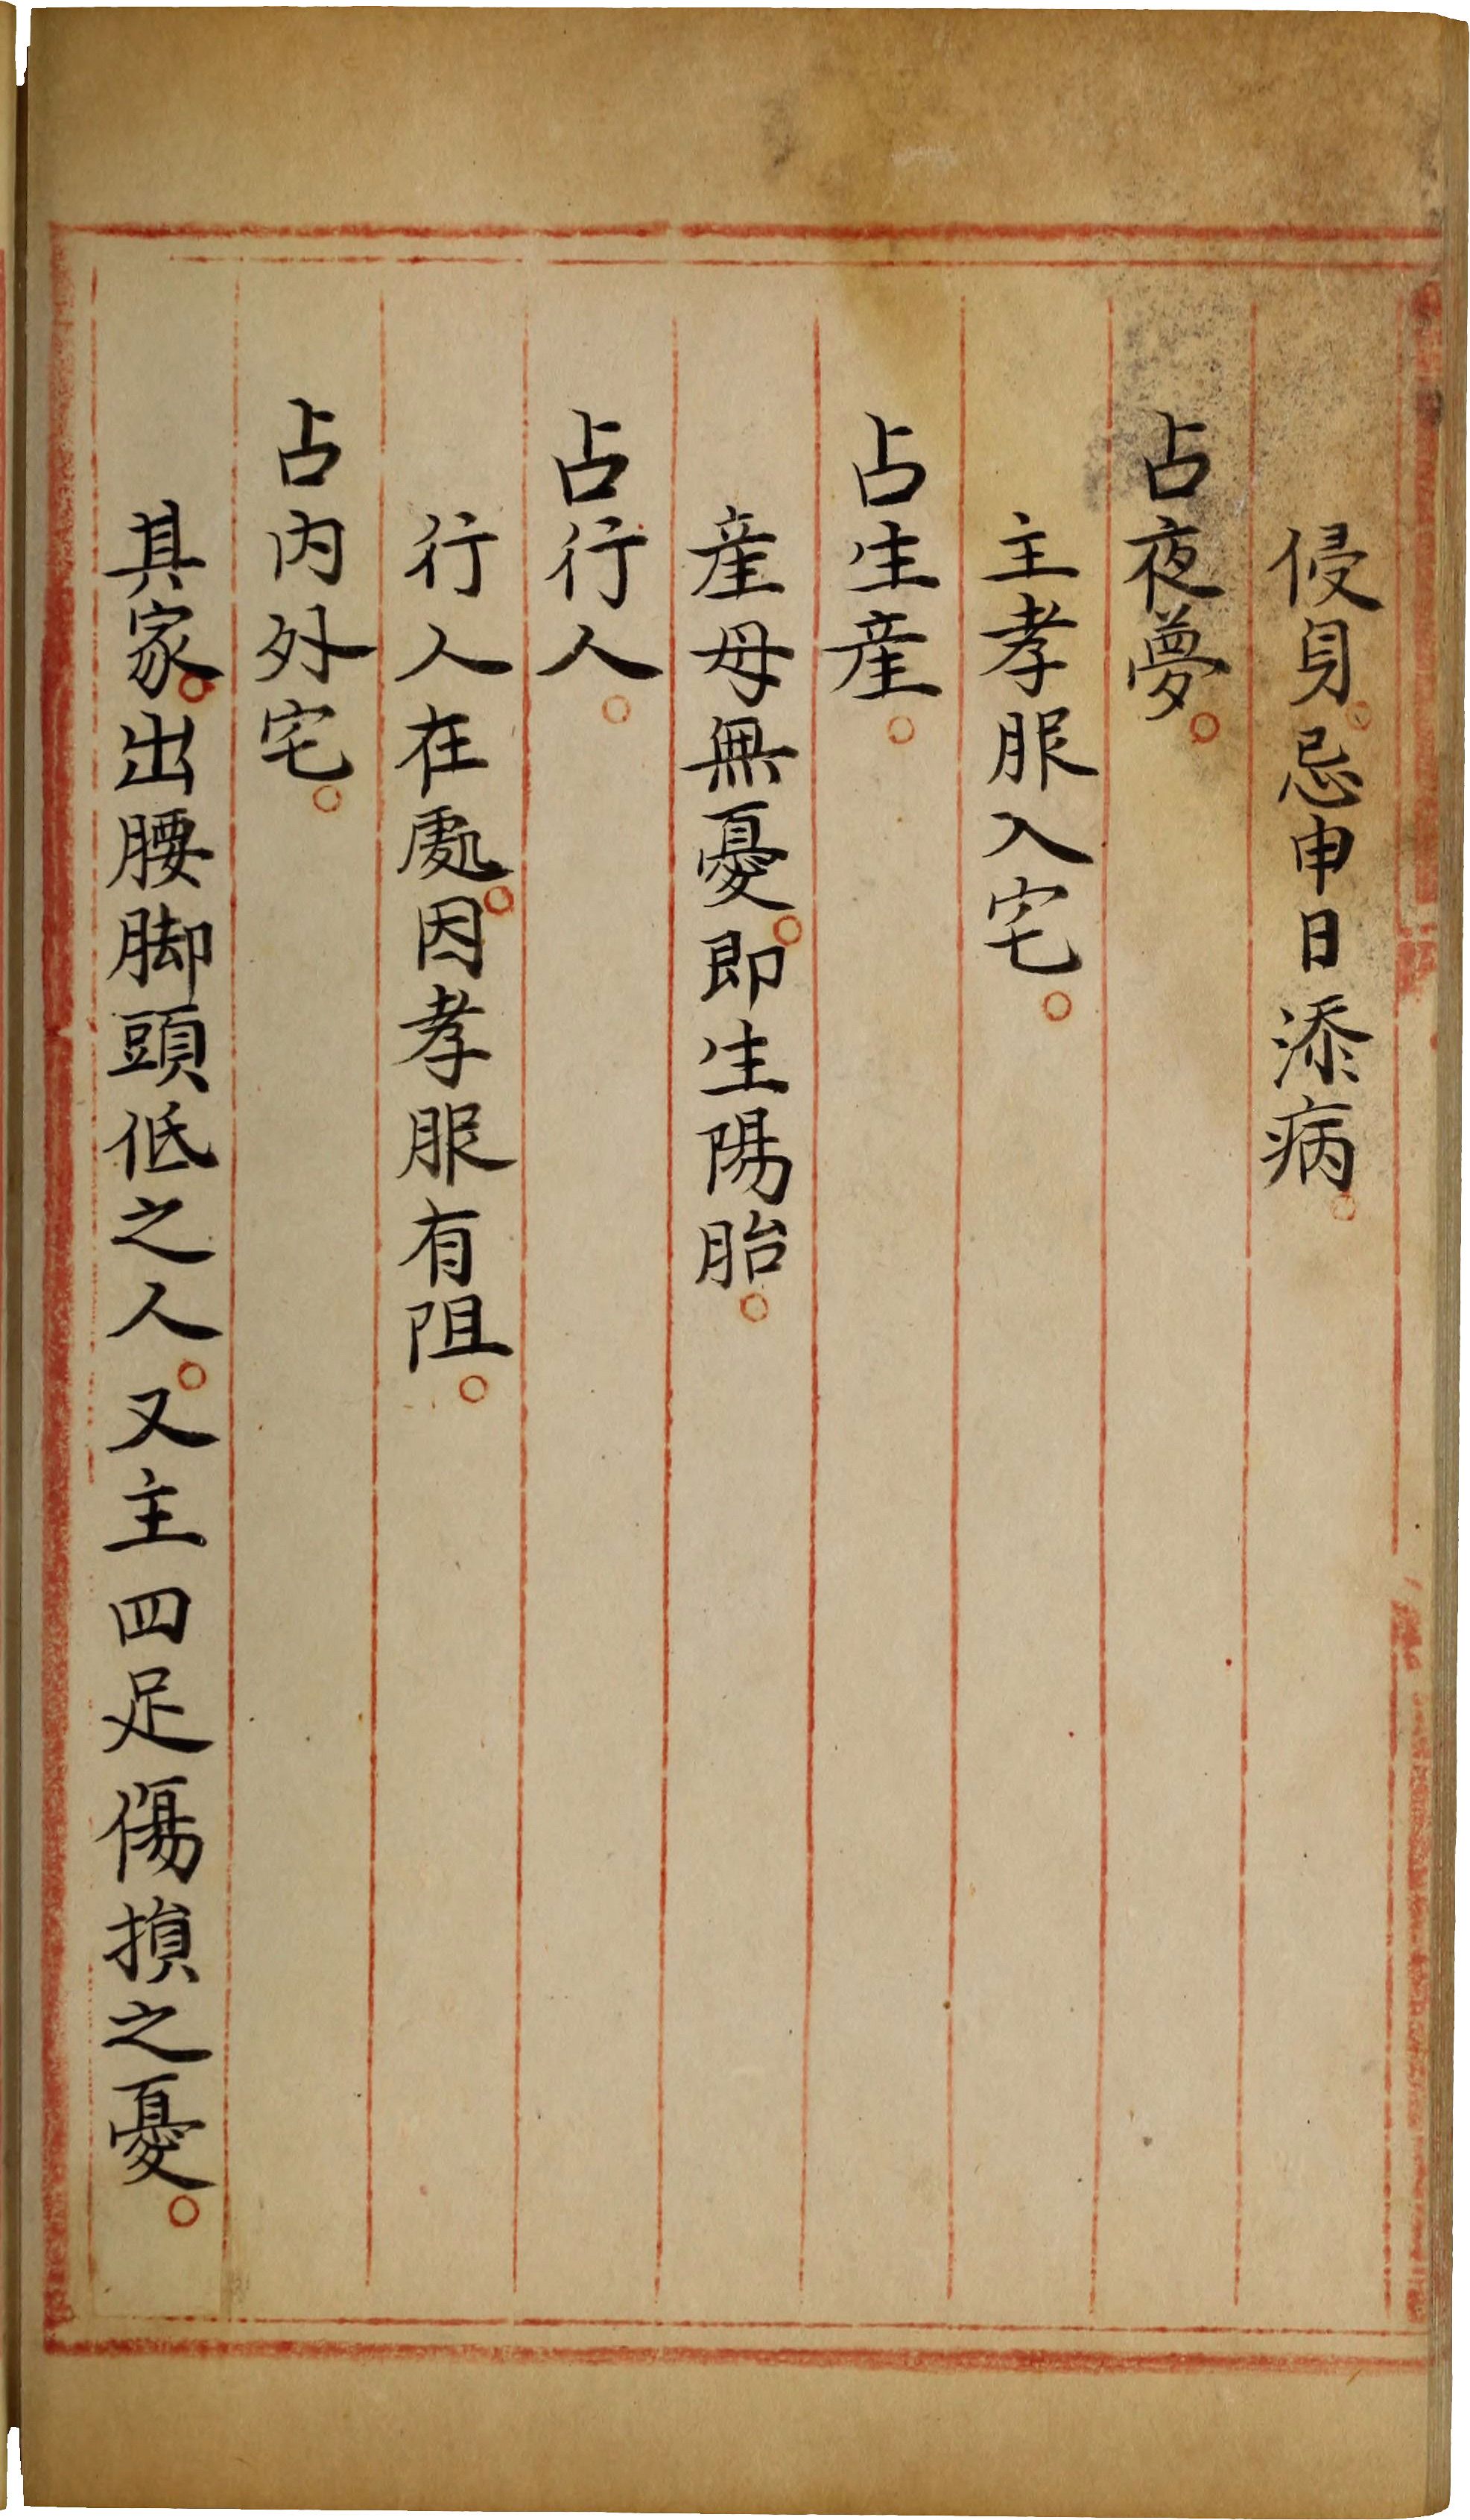 侵身。忌申日添病。
占夜夢。
主孝服入宅。
占生産。
産母無憂。即生陽胎。
占行人。
行人在處。因孝服有阻。
占内外宅。
其家。出腰脚頭低之人。又主四足傷損之憂。